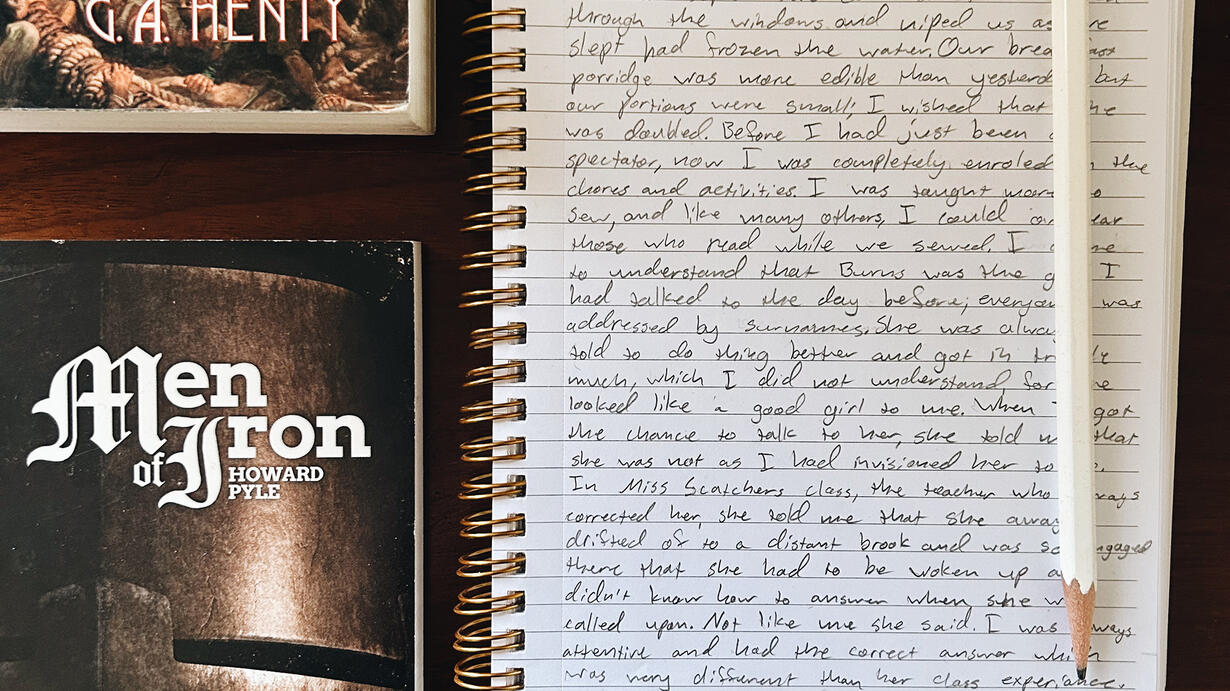 G.A. HENTY
Men
of Iron
HOWARD
PYLE
through the windows and niped us as
slept had frozen the water. Our
porridge was more edible than but
our portions were small; I wished that
was doubled. Before I had just been
spectator, now I was completely enroled the
chores and activities. I was taught
sew, and like many others, I could
those who read while we sewed. I
to understand that Burns was the I
had talked to the day before; was
addressed by surnames. She was
told to do thing better and got in
much, which I did not understand, for
looked like a good girl to me. When got
the chance to talk to her, she told that
she was not as I had invisioned her to
In Miss Scatchers class, the teacher who
corrected her, she told me that she
drifted of to a distant brook and was
there that she had to be woken up
didn't know how to answer when she
called upon. Not like me she said. I was
attentive and had the correct answer
was very different than her class experiance.